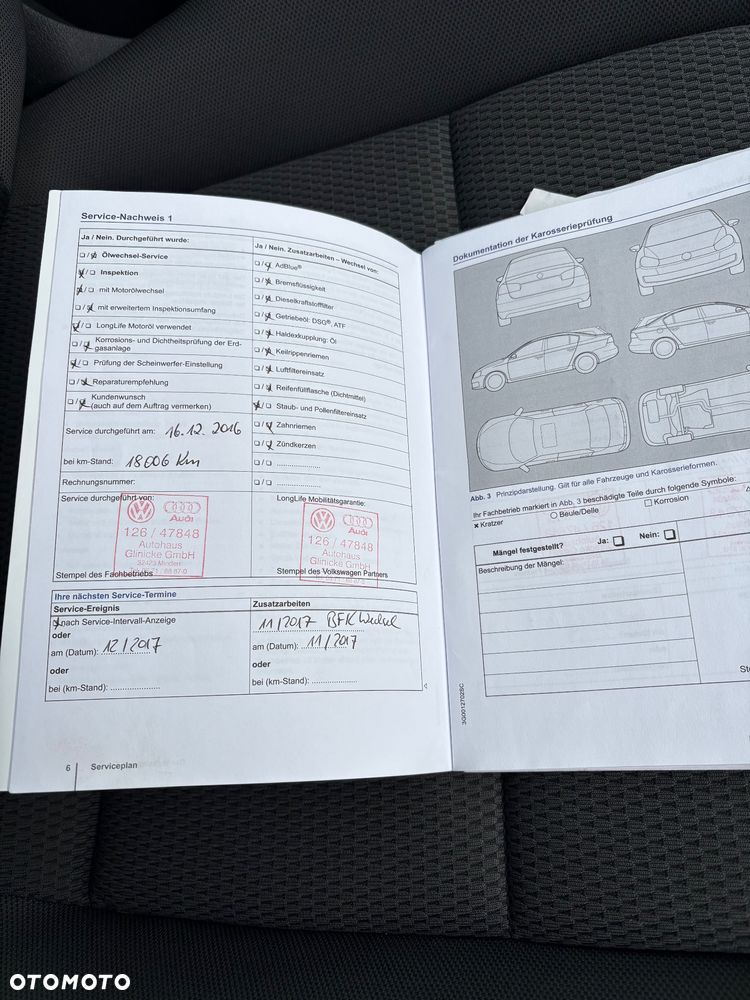 Service-Nachweis 1
Ja / Nein. Durchgeführt wurde:
Ölwechsel-Service
Inspektion
mit Motorölwechsel
mit erweitertem Inspektionsumfang
LongLife Motoröl verwendet
Korrosions- und Dichtheitsprüfung der Erd-
gasanlage
Prüfung der Scheinwerfer-Einstellung
Reparaturempfehlung
Kundenwunsch
(auch auf dem Auftrag vermerken)
Service durchgeführt am: 16.12.2016
bei km-Stand: 18606 Km
Rechnungsnummer:
Ja / Nein. Zusatzarbeiten – Wechsel von:
AdBlue®
Bremsflüssigkeit
Dieselkraftstofffilter
Getriebeöl: DSG®, ATF
Haldexkupplung: Öl
Keilrippenriemen
Luftfiltereinsatz
Reifenfüllflasche (Dichtmittel)
Staub- und Pollenfiltereinsatz
Zahnriemen
Zündkerzen
Service durchgeführt von:
Audi
126 / 47848
Autohaus
Glinicke GmbH
32423 Minden
Stempel des Fachbetriebs
LongLife Mobilitätsgarantie:
Audi
126 / 47848
Autohaus
Glinicke GmbH
Stempel des Volkswagen Partners
Ihre nächsten Service-Termine
Service-Ereignis
nach Service-Intervall-Anzeige
oder
am (Datum): 12/2017
oder
bei (km-Stand):
Zusatzarbeiten
11/2017 BFK Wechsel
am (Datum): 11/2017
oder
bei (km-Stand):
6 Serviceplan
Dokumentation der Karosserieprüfung
Abb. 3 Prinzipdarstellung. Gilt für alle Fahrzeuge und Karosserieformen.
Ihr Fachbetrieb markiert in Abb. 3 beschädigte Teile durch folgende Symbole:
× Kratzer ○ Beule/Delle □ Korrosion
Mängel festgestellt? Ja: Nein:
Beschreibung der Mängel:
3G0012702SC
OTOMOTO